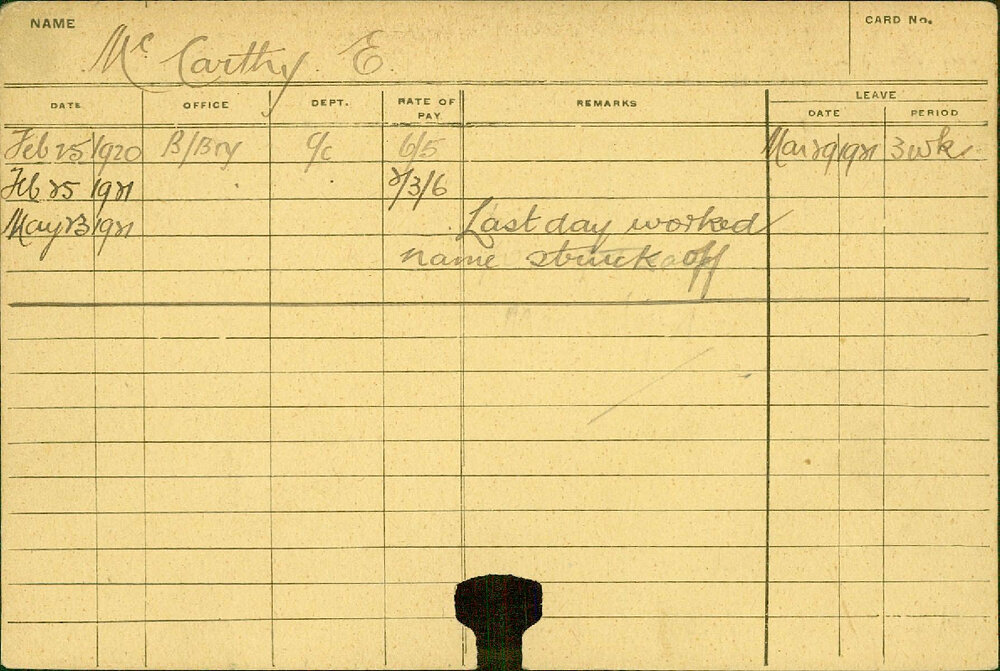 NAME
CARD No.
Mc Carthy E
DATE OFFICE DEPT. RATE OF PAY REMARKS LEAVE
DATE PERIOD
Feb 25 1920 B/Bry C/c 6/5 Mar 29 1921 3 wk
Feb 25 1921 2/3/6
May 23 1921 Last day worked
name struck off